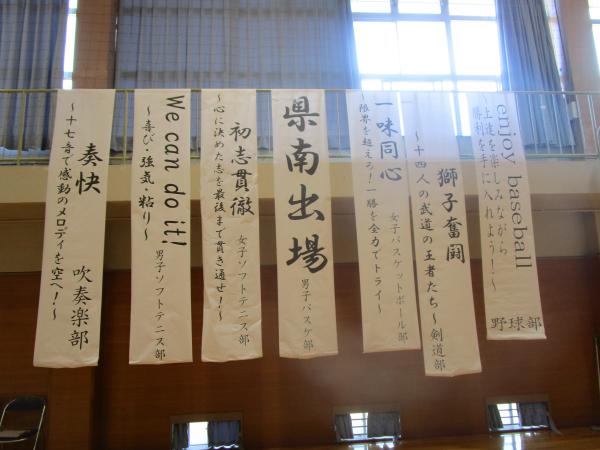 enjoy baseball
上達を楽しみながら
勝利を手に入れよう！～
野球部
獅子奮闘
～十四人の武道の王者たち～
剣道部
一味同心
限界を超えろ！一勝を全力でトライ～
女子バスケットボール部
県南出場
男子バスケ部
初志貫徹
～心に決めた志を最後まで貫き通せ！～
女子ソフトテニス部
We can do it!
～喜び・強気・粘り～
男子ソフトテニス部
奏快
～十七音で感動のメロディを空へ！～
吹奏楽部